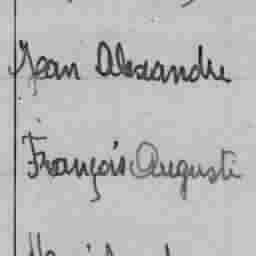 Jean Alexandre
François Augusti